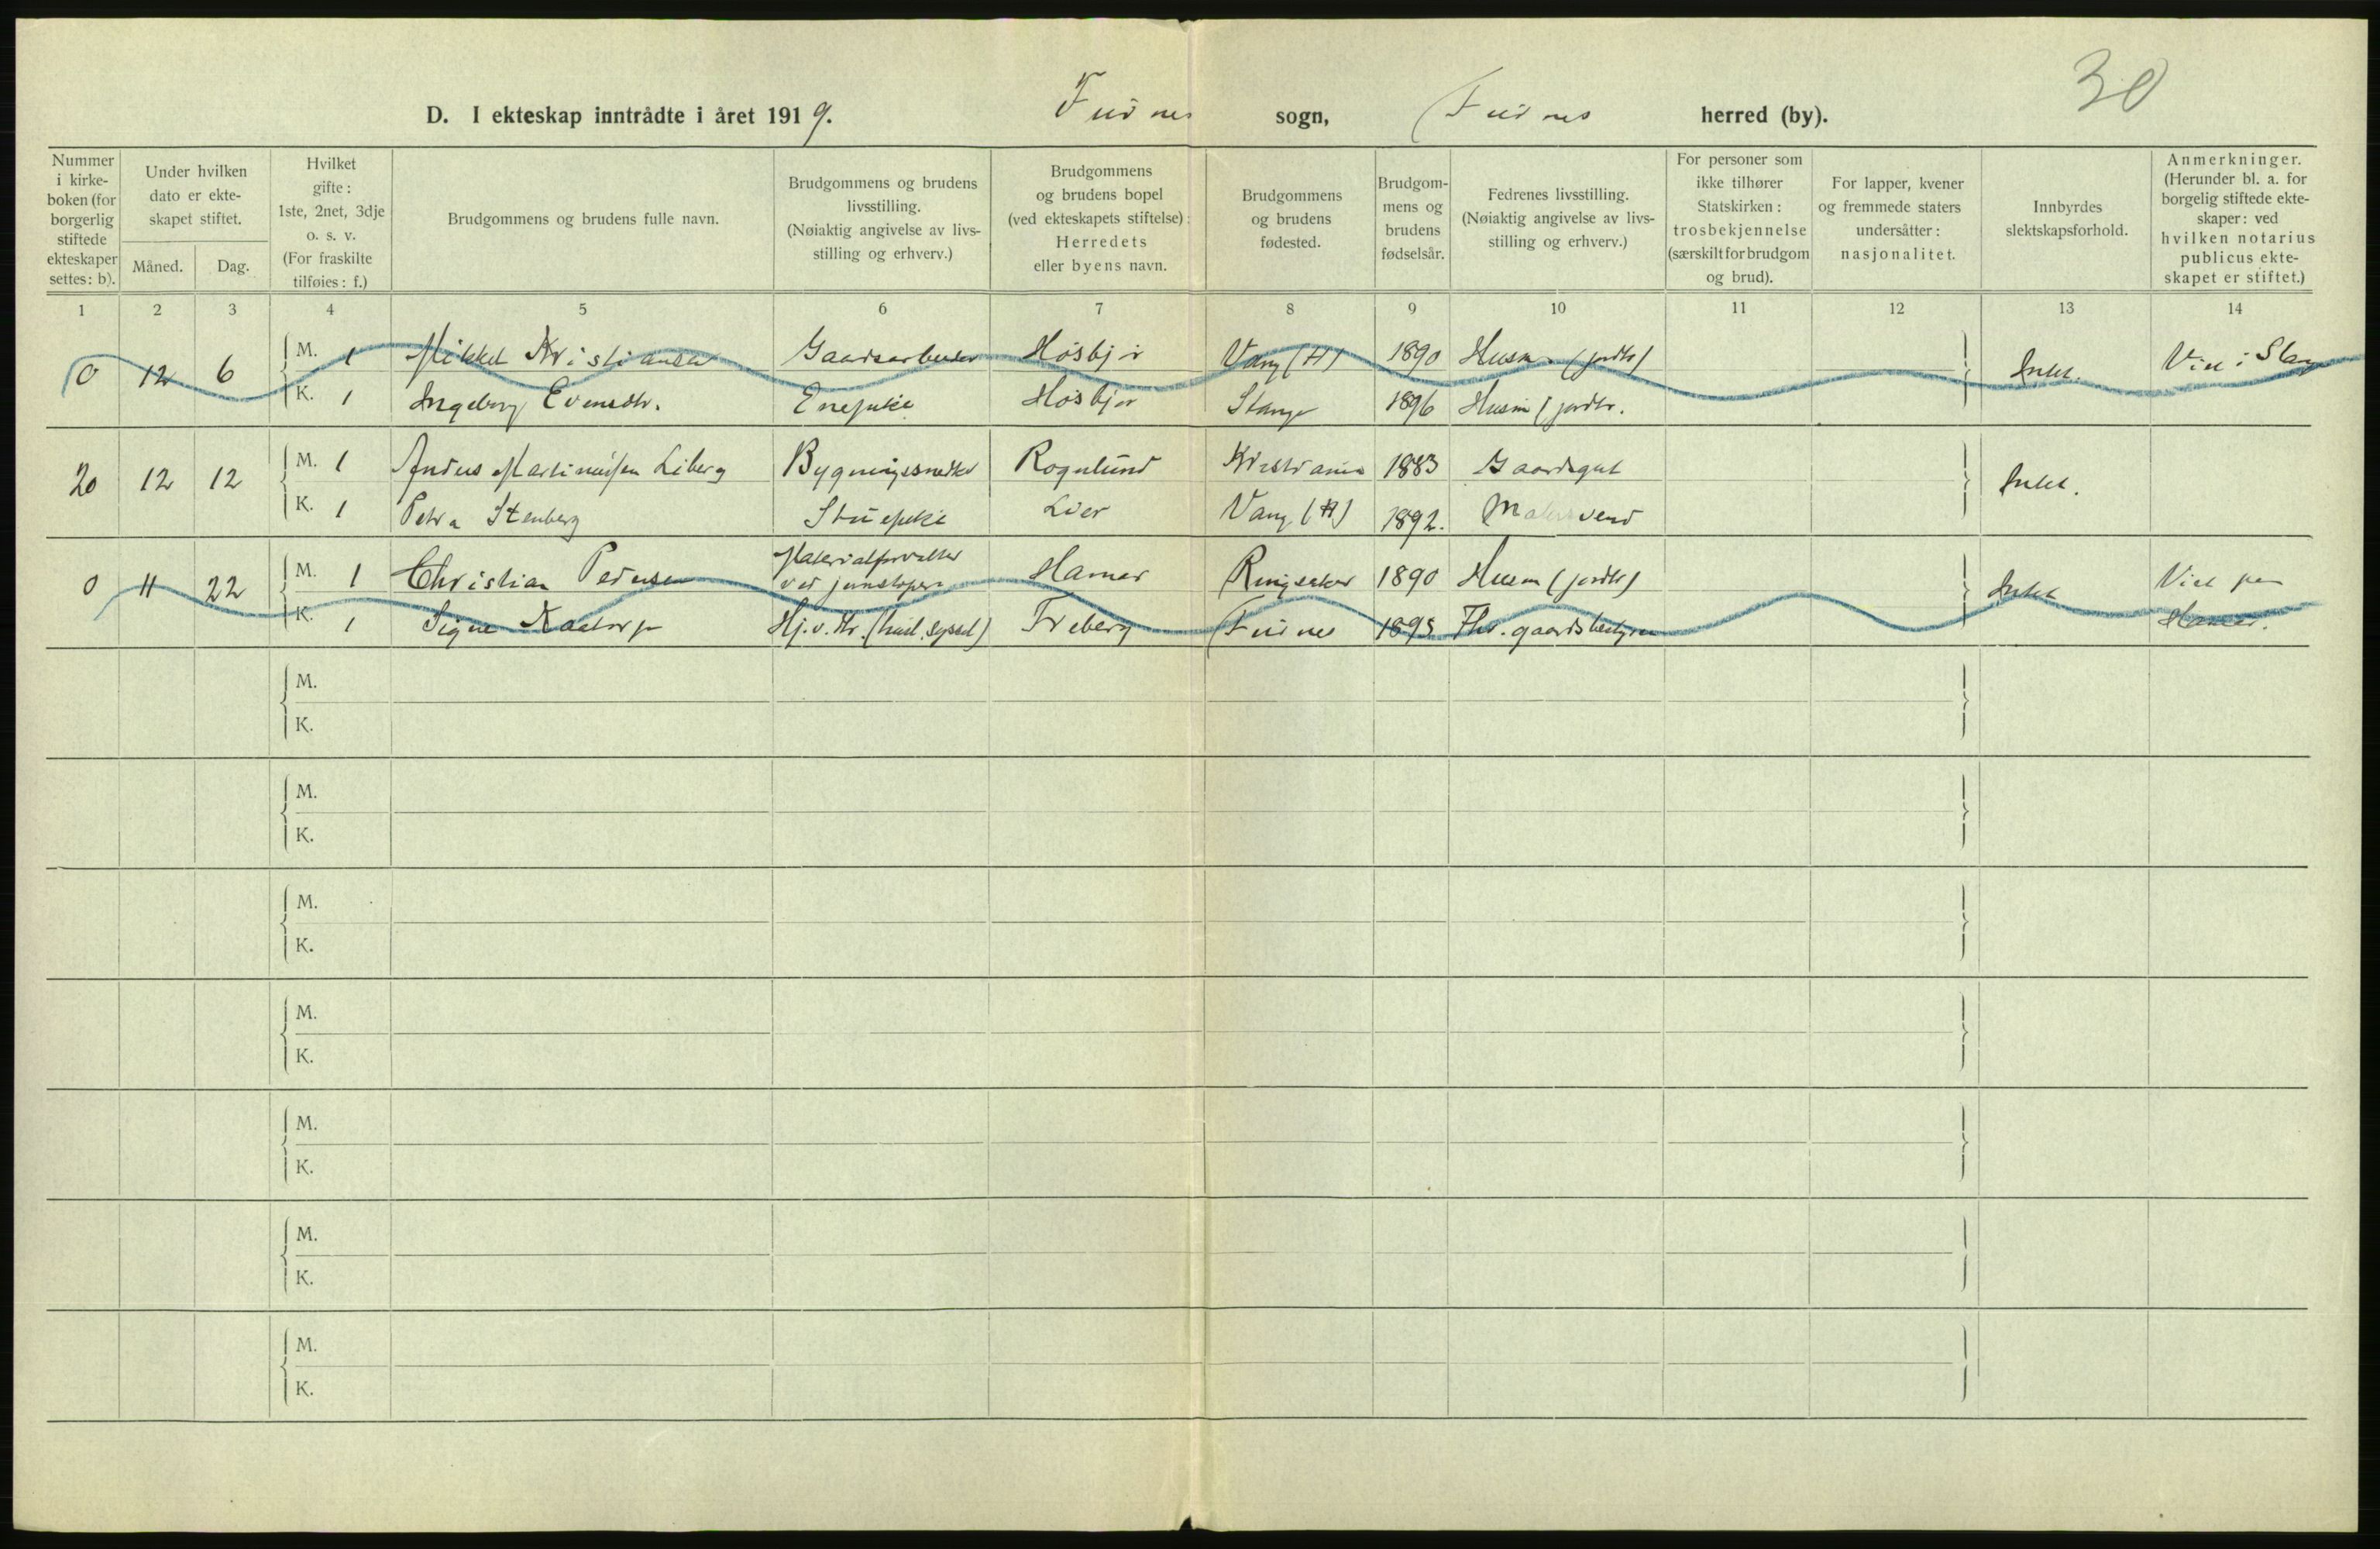 30
D. I ekteskap inntrådte i året 1919. Furnes sogn, Furnes herred (by).
Nummer i kirke- boken (for borgerlig stiftede ekteskaper settes: b).
Under hvilken dato er ekte- skapet stiftet.
Måned. Dag.
Hvilket gifte: 1ste, 2net, 3dje o. s. v. (For fraskilte tilføies: f.)
Brudgommens og brudens fulle navn.
Brudgommens og brudens livsstilling. (Nøiaktig angivelse av livs- stilling og erhverv.)
Brudgommens og brudens bopel (ved ekteskapets stiftelse): Herredets eller byens navn.
Brudgommens og brudens fødested.
Brudgom- mens og brudens fødselsår.
Fedrenes livsstilling. (Nøiaktig angivelse av livs- stilling og erhverv.)
For personer som ikke tilhører Statskirken: trosbekjennelse (særskilt for brudgom og brud).
For lapper, kvener og fremmede staters undersåtter: nasjonalitet.
Innbyrdes slektskapsforhold.
Anmerkninger. (Herunder bl. a. for borgelig stiftede ekte- skaper: ved hvilken notarius publicus ekte- skapet er stiftet.)
1 2 3 4 5 6 7 8 9 10 11 12 13 14
0 12 6 M. 1 Mikkel Kristiansen Gaardsarbeider Høsbjør Vang (H) 1890 Husm. (jordbr) Intet. Viet i Stange
K. 1 Ingeborg Evensdtr. Enepike Høsbjør Stange 1896 Husm (jordbr.
20 12 12 M. 1 Anders Martinussen Liberg Bygningssnedker Rognlund Kristiania 1883 Gaardsgut Intet.
K. 1 Petra Stenberg Stuepike Lier Vang (H) 1892. Malersvend
0 11 22 M. 1 Christian Pedersen Materialforvalter ved jernstøperi Hamar Ringsaker 1890 Husm (jordbr) Intet Viet paa
K. 1 Signe Kaatorp Hj.v. dtr. (husl. syssel) Freberg Furnes 1895 Fhv. gaardsbestyrer Hamar.
M.
K.
M.
K.
M.
K.
M.
K.
M.
K.
M.
K.
M.
K.